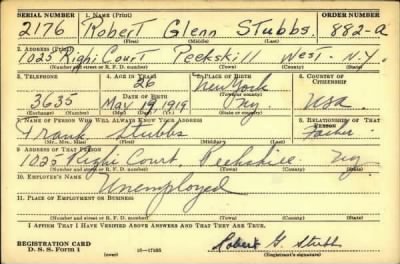 SERIAL NUMBER 1. NAME (Print) ORDER NUMBER
2176 Robert Glenn Stubbs 882-a
(First) (Middle) (Last)
2. ADDRESS (Print)
1025 Righi Court Peekskill West. N.Y.
(Number and street or R. F. D. number) (Town) (County) (State)
3. TELEPHONE 4. AGE IN YEARS 5. PLACE OF BIRTH 6. COUNTRY OF CITIZENSHIP
26 New York
DATE OF BIRTH
3635 May 19 1919 Ny. USA
(Mo.) (Day) (Yr.) (State or country)
7. NAME OF PERSON WHO WILL ALWAYS KNOW YOUR ADDRESS 8. RELATIONSHIP OF THAT PERSON
Frank Stubbs Father
(Mr., Mrs., Miss) (First) (Middle) (Last)
9. ADDRESS OF THAT PERSON
1025 Righi Court. Peekskill Ny
(Number and street or R. F. D. number) (Town) (County) (State)
10. EMPLOYER'S NAME
Unemployed
11. PLACE OF EMPLOYMENT OR BUSINESS
(Number and street or R. F. D. number) (Town) (County) (State)
I AFFIRM THAT I HAVE VERIFIED ABOVE ANSWERS AND THAT THEY ARE TRUE.
REGISTRATION CARD
D. S. S. Form 1 (over) Robert G. Stubbs
(Registrant's signature)